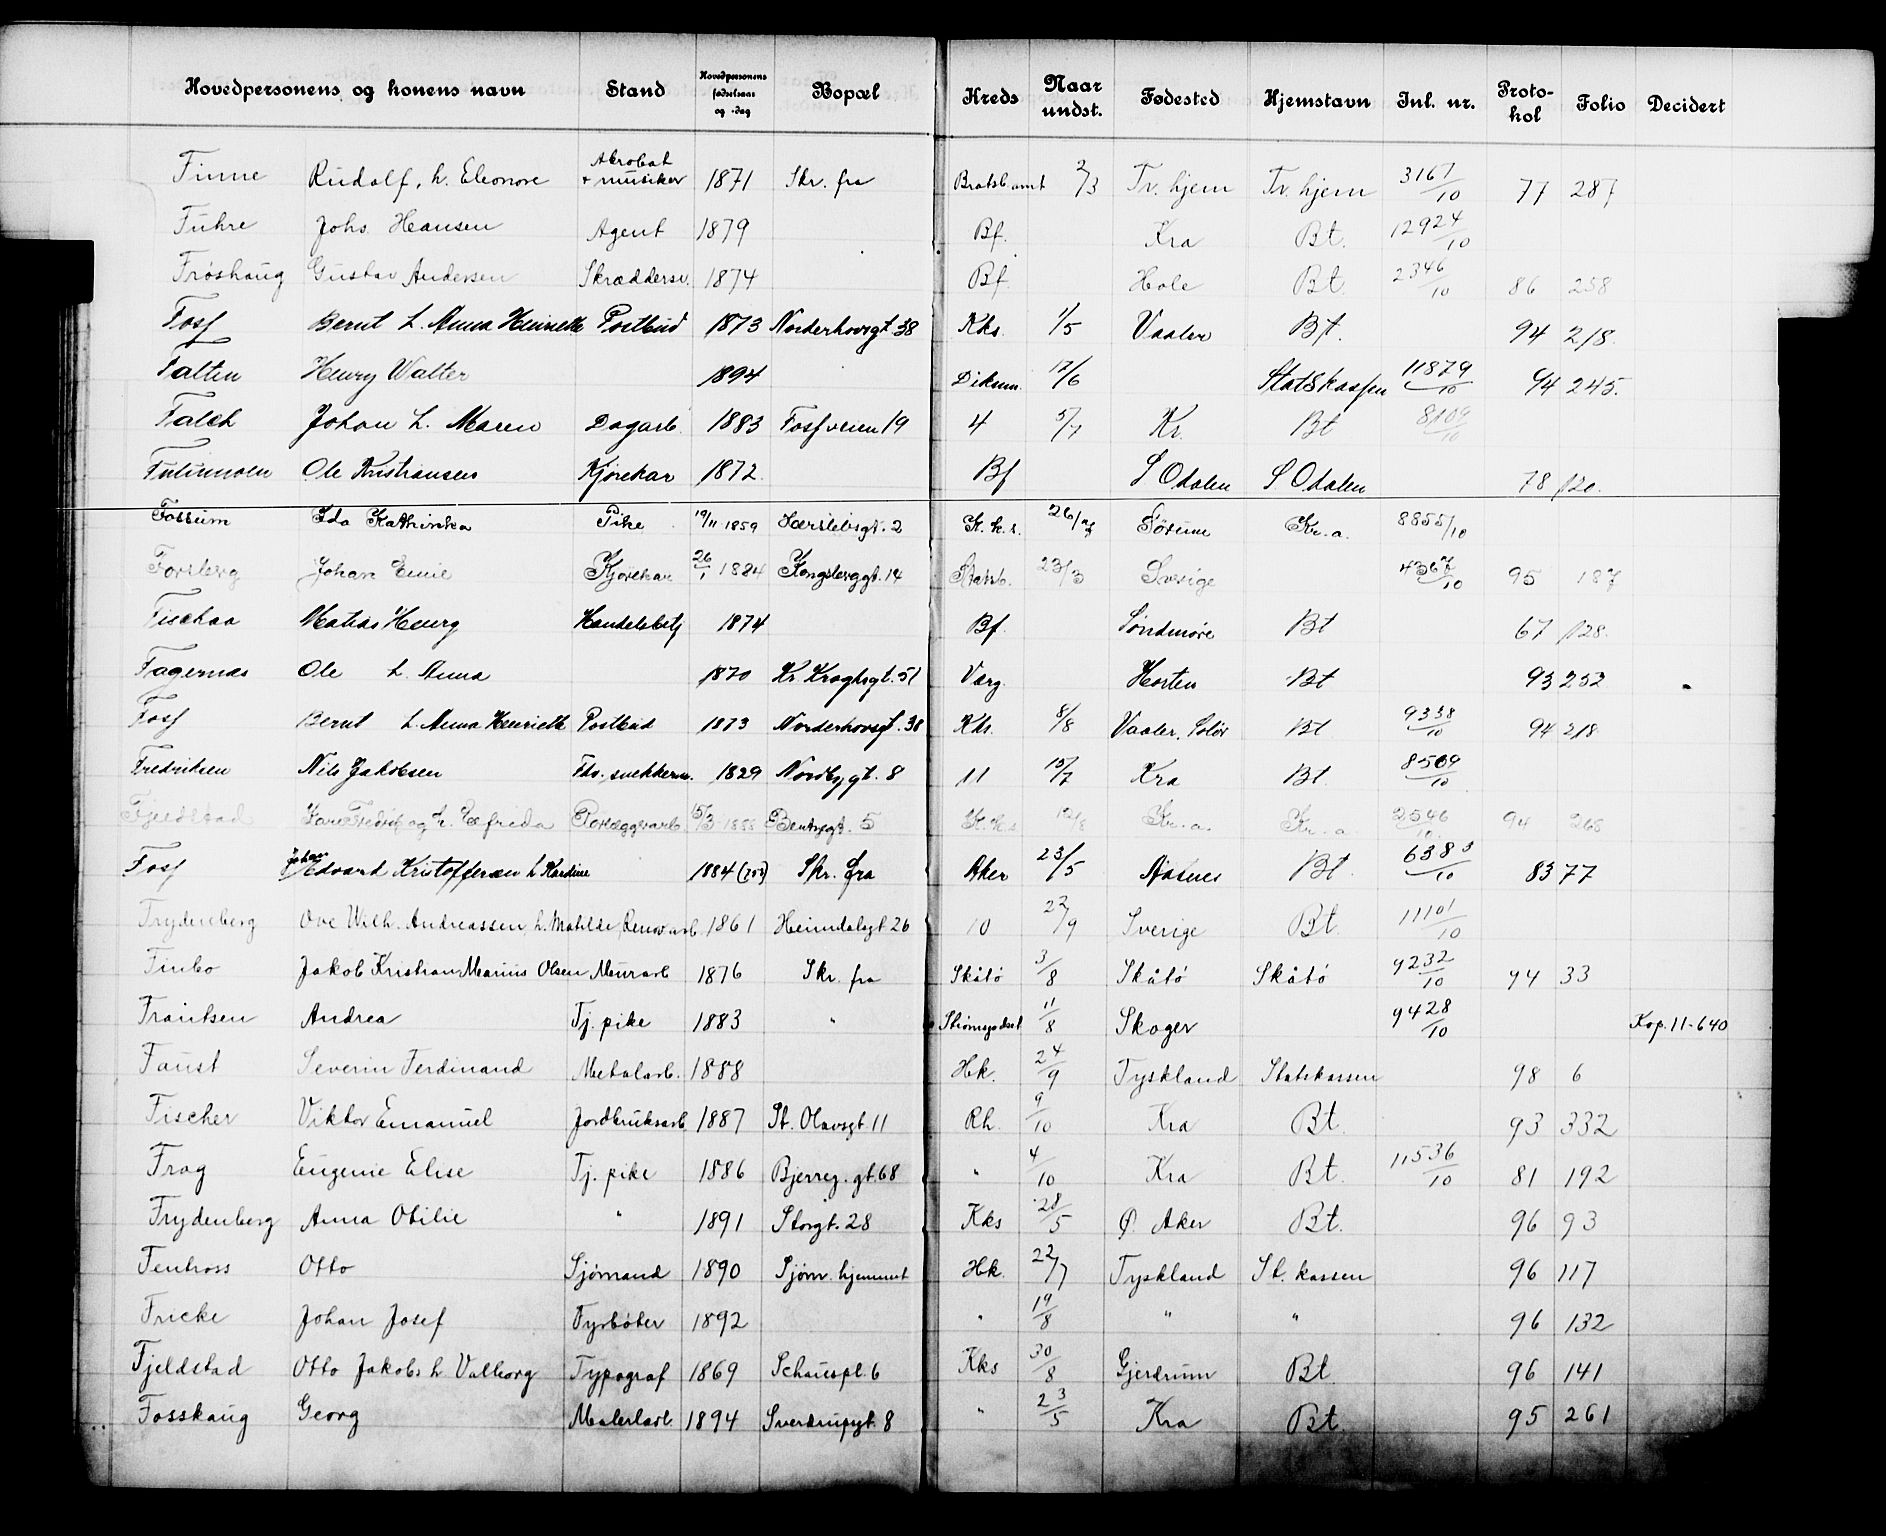 Hovedpersonens og konens navn Stand Hovedpersonens fødselsaar og -dag Bopæl Kreds Naar undst. Fødested Hjemstavn Inl. nr. Proto-kol Folio Decidert
Finne Rudolf, h. Eleonore Akrobat + musiker 1871 Skr. fra Bratsb. amt 2/3 Tv. hjem Tv. hjem 3167/10 77 287
Fuhre Johs Hansen Agent 1879 Bf. Kra Bt. 12924/10
Frøshaug Gustav Andersen Skræddersv. 1874 Bf. Hole Bt 2346/10 86 258
Foss Bernt h. Anna Henriette Postbud 1873 Norderhovsgt 38 Kks. 1/5 Vaaler Bt. 94 218.
Falten Henry Walter 1894 Dikem. 17/6 Statskassen 11879/10 94 245.
Falch Johan h. Maren Dagarb. 1883 Fossveien 19 4 5/7 Kr. Bt 8109/10
Ole Kristiansen Kjørekar 1872. Bf S Odalen S Odalen 78 120.
Fossum Ida Kathinka Pike 19/11 1859 Jærslebsgt. 2 K. k. s. 26/ Kr. a. 8855/10
Forsberg Johan Emil Kjørekar 26/1 1884 Kongsberggt. 14 23/3 Sverige 4367/10 95 187
Matias Henrg Handelsbetj 1874 Bf. Søndmøre Bt 67 128.
Fagernæs Ole h. Anna 1870 Kr. Kroghsgt. 51 Varg. Horten Bt 93 252
Foss Bernt h. Anna Henriette Postbud 1873 Norderhovsgt. 38 Kks. 8/8 Vaaler, Solør Bt 9338/10 94 218
Fredriksen Nils Jakobsen Fhv. snekkerm. 1829 Nordbygt. 8 11 15/7 Kra Bt 8509/10
Fjeldstad og h. Elfrida 15/3 1888 Bentsegt. 5 K. k. s 12/8 Kr. a. Kr. a. 2546/10. 94 268
Foss Johan Edvard Kristoffersen h Kardine 1884 Skr. fra Aker 23/5 Aasnes Bt. 6383/10 83 77
Frydenberg Ove Wilh. Andreassen, h. Matilde, Renov.arb. 1861 Heimdalsgt 26 10 22/9 Sverige Bt. 11101/10
Finbo Jakob Kristian Marius Olsen Murarb 1876 Skr. fra Skåtø 3/8 Skåtø Skåtø 9232/10 94 33
Frantsen Andrea Tj. pike 1883 " Strømsgodset 11/8 Skoger 9428/10 Kop. 11-640
Faust Severin Ferdinand Metalarb. 1888 Hk. 24/9 Tyskland Statskassen 98 6
Fischer Viktor Emanuel Jordbruksarb 1887 St. Olavsgt 11 Rh. 9/10 Kra Bt. 93 332
Frog Eugenie Elise Tj. pike 1886 Bjerreg. gt. 68 " 4/10 Kra Bt. 11536/10 81 192
Frydenberg Anna Otilie " 1891 Storgt. 28 Kks 28/5 Ø Aker Bt. 96 93
Fentross Otto Sjømand 1890 Sjøm. hjemmet Hk. 22/7 Tyskland St. kassen 96 117
Fricke Johan Josef Fyrbøter 1892 " 19/8 " " 96 132
Fjeldstad Otto Jakobs h Valborg Typograf 1869 Schouspl. 6 Kks 30/8 Gjerdrum Bt. 96 141
Fosshaug Georg Malerlærl. 1894 Sverdrupsgt. 8 " 23/5 Kra Bt. 95 261